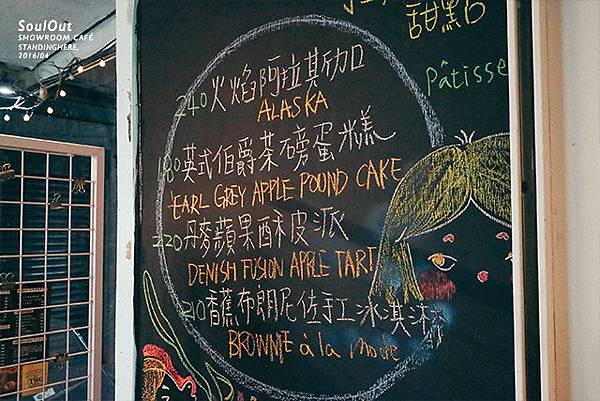 SoulOut
SHOWROOM.CAFÉ
STANDINGHERE,
2016/04
甜點
Pâtisse
240 火焰阿拉斯加
ALASKA
180 英式伯爵茶磅蛋糕
EARL GREY APPLE POUND CAKE
220 丹麥蘋果酥皮派
DENISH FUSION APPLE TART
210 香蕉布朗尼佐手工冰淇淋
BROWNIE à la mode
TWG